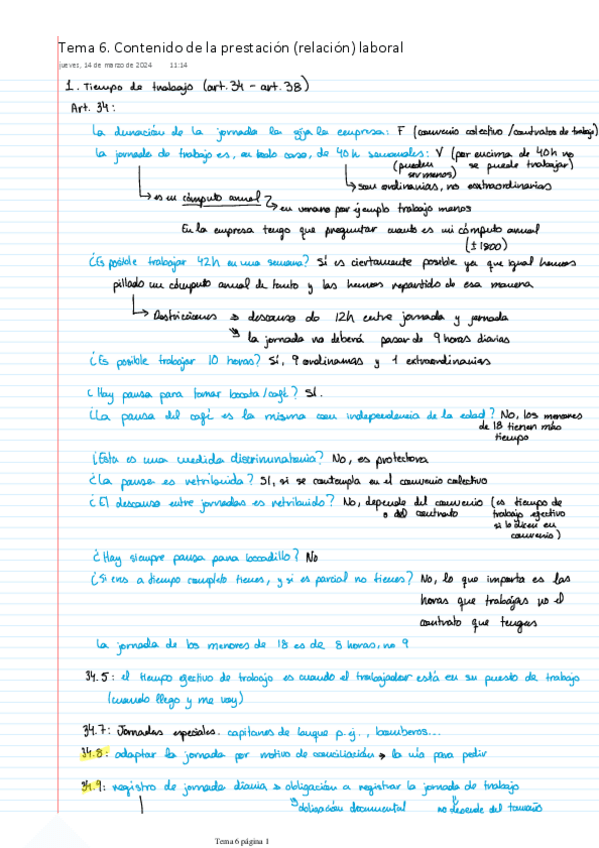 Tema 6. Contenido de la prestación (relación) laboral
jueves, 14 de marzo de 2024 11:14
1. Tiempo de trabajo (art. 34 - art. 38)
Art. 34:
La duración de la jornada la fija la empresa: F (convenio colectivo / contratos de trabajo)
la jornada de trabajo es, en todo caso, de 40h semanales: V (por encima de 40h no
(pueden se puede trabajar)
ser menos)
↳ es en cómputo anual → en verano por ejemplo trabajo menos
↳ son ordinarias, no extraordinarias
En la empresa tengo que preguntar cuanto es mi cómputo anual
(± 1800)
¿Es posible trabajar 42h en una semana? Sí es ciertamente posible ya que igual hemos
pillado un cómputo anual de tanto y las hemos repartido de esa manera
↳ Restricciones → descanso de 12h entre jornada y jornada
↘ la jornada no deberá pasar de 9 horas diarias
¿Es posible trabajar 10 horas? Sí, 9 ordinarias y 1 extraordinarias
¿Hay pausa para tomar bocata/café? Sí.
¿La pausa del café es la misma con independencia de la edad? No, los menores
de 18 tienen más
tiempo
¿Esta es una medida discriminatoria? No, es protectora
¿La pausa es retribuida? Sí, si se contempla en el convenio colectivo
¿El descanso entre jornadas es retribuido? No, depende del convenio (es tiempo de
o del contrato trabajo efectivo
si lo dicen en
convenio)
¿Hay siempre pausa para bocadillo? No
¿Si eres a tiempo completo tienes, y si es parcial no tienes? No, lo que importa es las
horas que trabajas no el
contrato que tengas
La jornada de los menores de 18 es de 8 horas, no 9
34.5: el tiempo efectivo de trabajo es cuando el trabajador está en su puesto de trabajo
(cuando llego y me voy)
34.7: Jornadas especiales. capitanes de buque p.ej., bomberos...
34.8: adaptar la jornada por motivo de conciliación → la vía para pedir
34.9: registro de jornada diaria → obligación a registrar la jornada de trabajo
↘ obligación documental no depende del tamaño
Tema 6 página 1